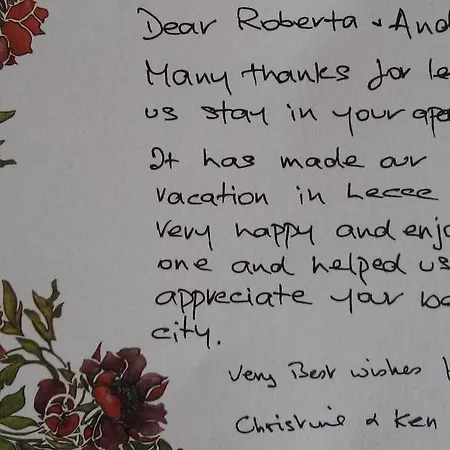 Dear Roberta & And
Many thanks for le
us stay in your apa
It has made our
vacation in Lecce
very happy and enjo
one and helped us
appreciate your be
city.
Very Best wishes
Christine & Ken